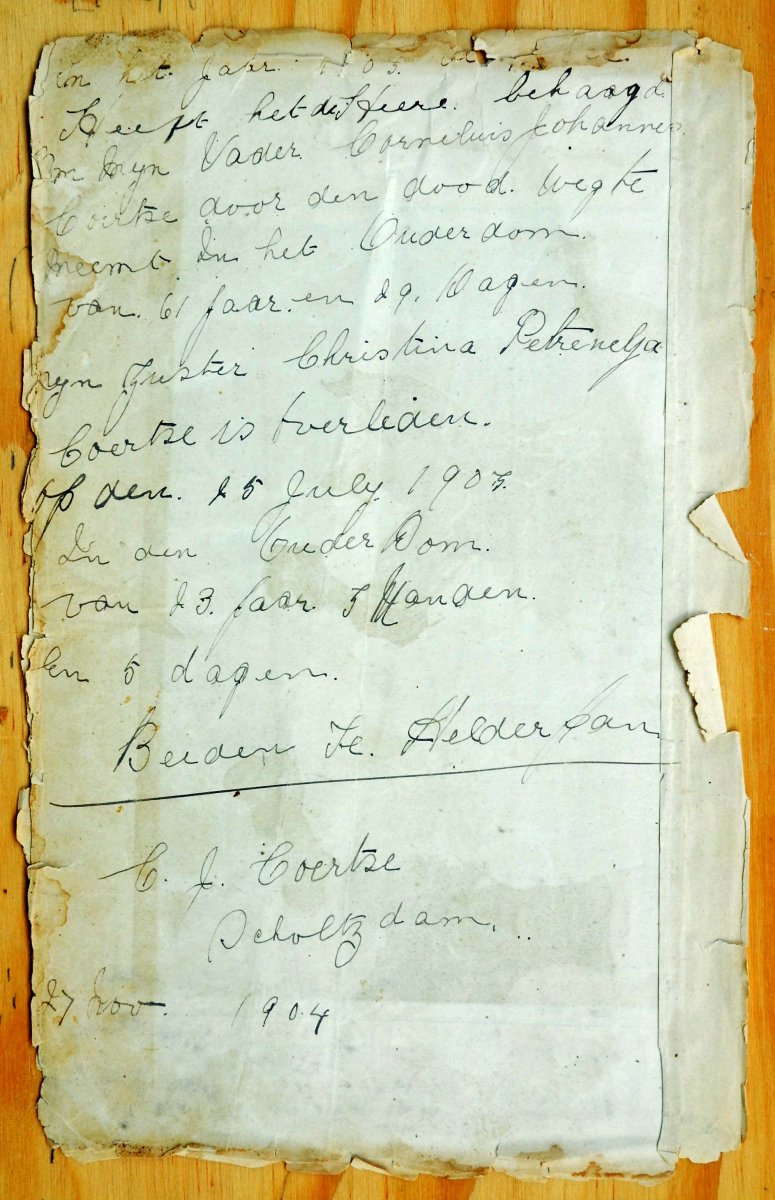 in het Jaar 1903.
Heeft het de Heere behaagd
Om Myn Vader Cornelius Johannes
Coertse door den dood. weg te
neemt In het Ouderdom
van. 61 Jaar. en 29. Dagen.
myn Zuster Christina Petrenella
Coertse is overleden.
op den. 25 July 1903.
In den Ouder Dom.
van 23. Jaar. 3 Manden.
En 5 dagen.
Beiden Te. Helderfan
C. J. Coertse
Scholtzdam.
27 Nov. 1904